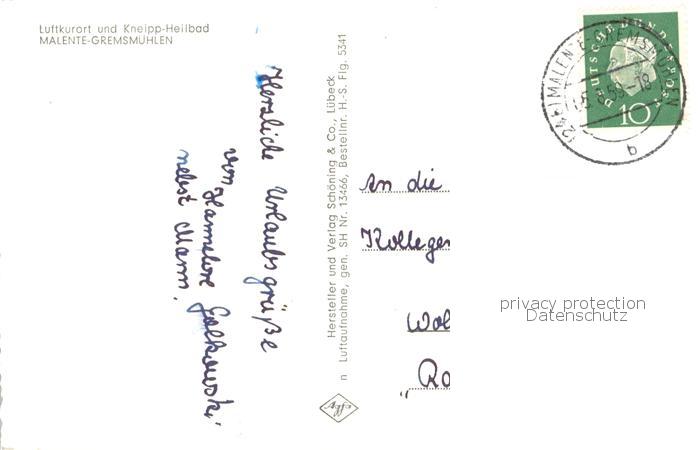 Luftkurort und Kneipp-Heilbad
MALENTE-GREMSMÜHLEN
Herzliche Urlaubsgrüße
von Hannelore
nebst Mann.
Hersteller und Verlag Schöning & Co., Lübeck
n Luftaufnahme, gen. SH Nr. 13466, Bestellnr. H.-S. Flg. 5341
Agfa
DEUTSCHE BUNDESPOST
10
MALENTE-GREMSMÜHLEN
b
An die
Kollegen
Wol
„Ro
privacy protection
Datenschutz